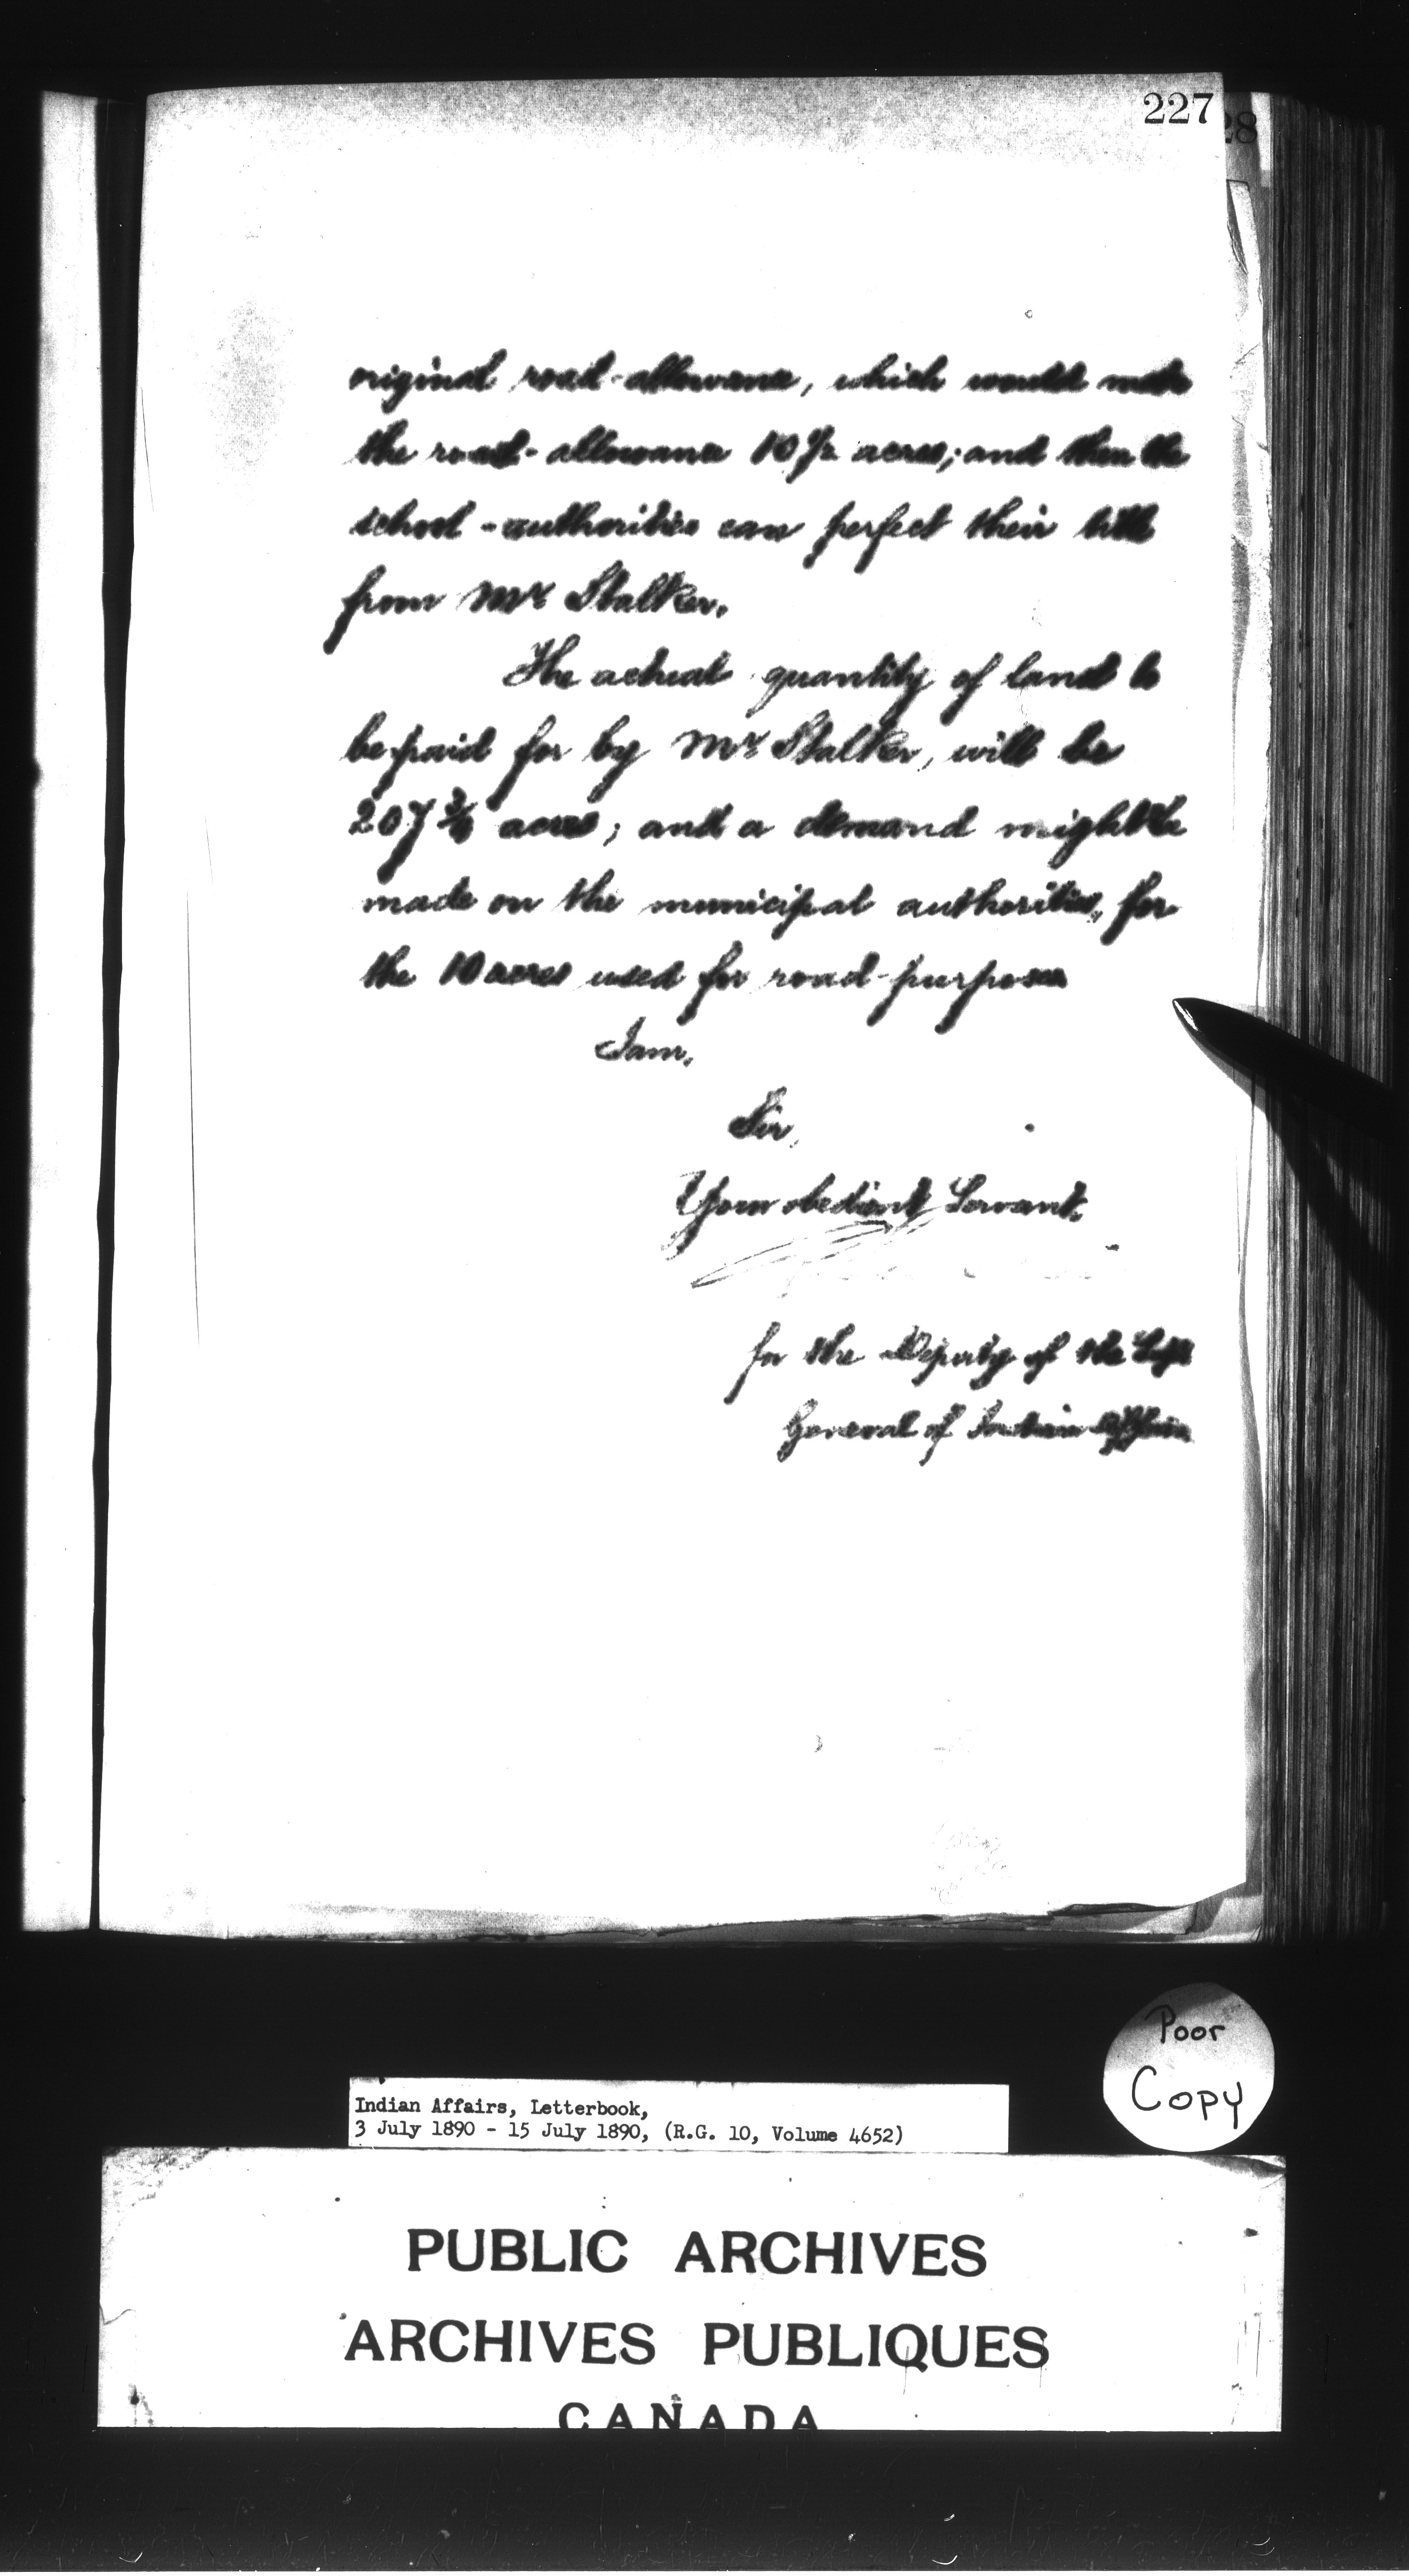 227
28
original road-allowance, which would make
the road-allowance 10 1/2 acres; and then the
school-authorities can perfect their title
from Mr Stalker.
The actual quantity of land to
be paid for by Mr Stalker, will be
207 acres; and a demand might be
made on the municipal authorities, for
the 10 acres used for road-purposes
I am,
Sir,
Your obedient Servant,
for the Deputy of the Supt
General of Indian Affairs
Poor
Copy
Indian Affairs, Letterbook,
3 July 1890 - 15 July 1890, (R.G. 10, Volume 4652)
PUBLIC ARCHIVES
ARCHIVES PUBLIQUES
CANADA